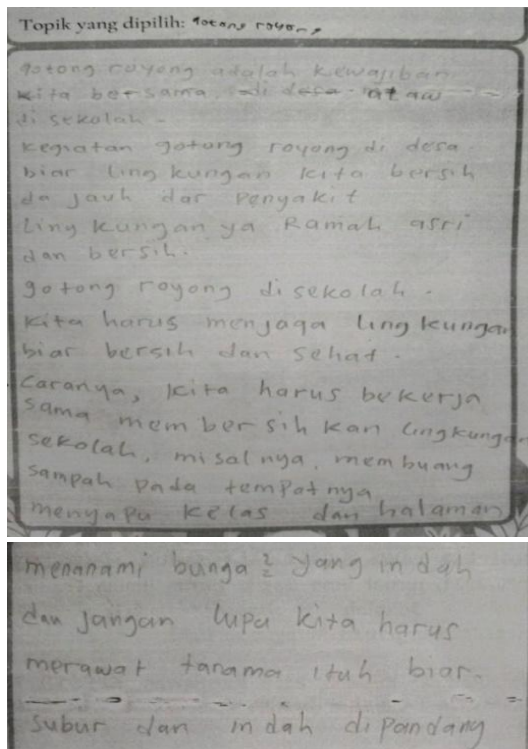 Topik yang dipilih: gotong royong
gotong royong adalah kewajiban
kita bersama, di desa atau
di sekolah.
kegiatan gotong royong di desa.
biar lingkungan kita bersih
da jauh dar penyakit
Lingkungan ya Ramah asri
dan bersih.
gotong royong di sekolah.
kita harus menjaga lingkungan
biar bersih dan sehat.
caranya, kita harus bekerja
sama membersihkan lingkungan
sekolah, misalnya, membuang
sampah pada tempatnya
menyapu kelas dan halaman
menanami bunga2 yang indah
dan jangan lupa kita harus
merawat tanama ituh biar
subur dan indah dipandang